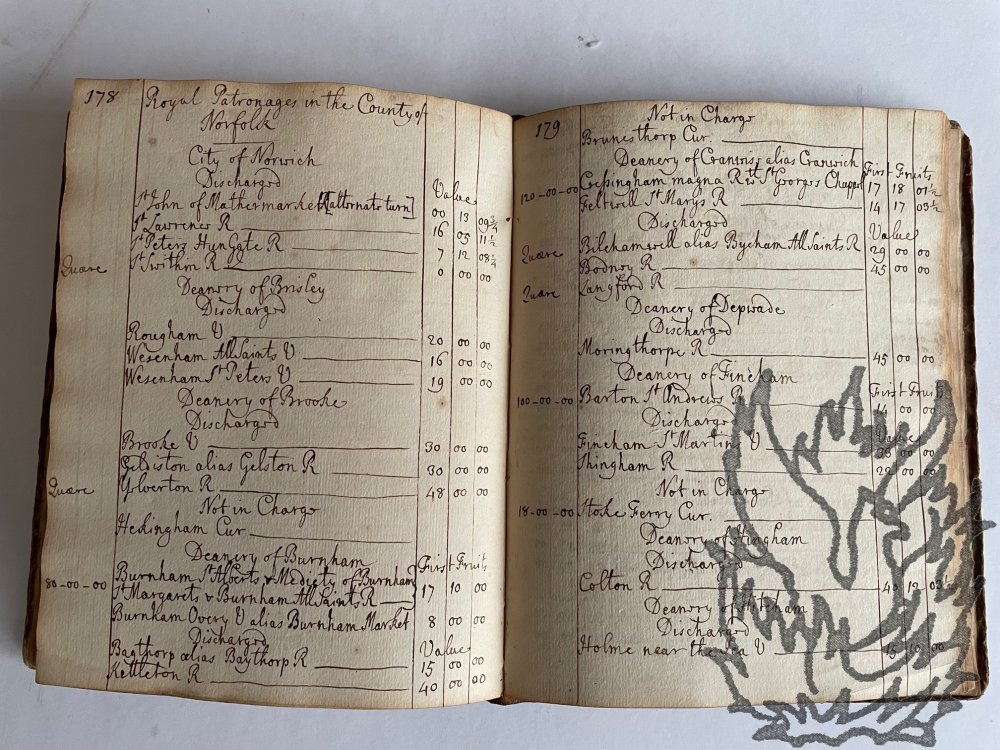 178
Royal Patronages in the County of
Norfolk
City of Norwich
Discharged
Value
St John of Mathermarket [alternate turn] 00 13 09¾
St Lawrence R 16 05 11½
St Peters HunGate R 7 12 08¼
Quære St Swithin R 0 00 00
Deanery of Brisley
Discharged
Rougham V 20 00 00
Wesenham All Saints V 16 00 00
Wesenham St Peters V 19 00 00
Deanery of Brooke
Discharged
Brooke V 30 00 00
alias Gelston R 30 00 00
Quære Yolverton R 48 00 00
Not in Charge
Heckingham Cur
Deanery of Burnham
First Fruits
80-00-00 Burnham St Alberts & Mediety of Burnham
St Margarets & Burnham All Saints R 17 10 00
Burnham Overy V alias Burnham Market 8 00 00
Discharged
Value
Bagthorp alias Baythorp R 15 00 00
Kettleton R 40 00 00
179
Not in Charge
Brunesthorp Cur.
Deanery of Cranwise alias Cranwich
First Fruits
120-00-00 Cressingham magna R wth St Georges Chappel 17 18 01½
Feltwell St Marys R 14 17 03½
Discharged
Value
Quære Bilchamwell alias Bycham All Saints R 29 00 00
Bodney R 45 00 00
Quære Langford R
Deanery of Depwade
Discharged
Moringthorpe R 45 00 00
Deanery of Fincham
First Fruits
100-00-00 Barton St Andrews R 14 00 00
Discharged
Value
Fincham St Martins V 28 00 00
Shingham R 22 00 00
Not in Charge
18-00-00 Stoke Ferry Cur.
Deanery of Hingham
Discharged
Colton R 40 12 03½
Deanery of Hitcham
Discharged
Holme near the Sea V 15 10 00